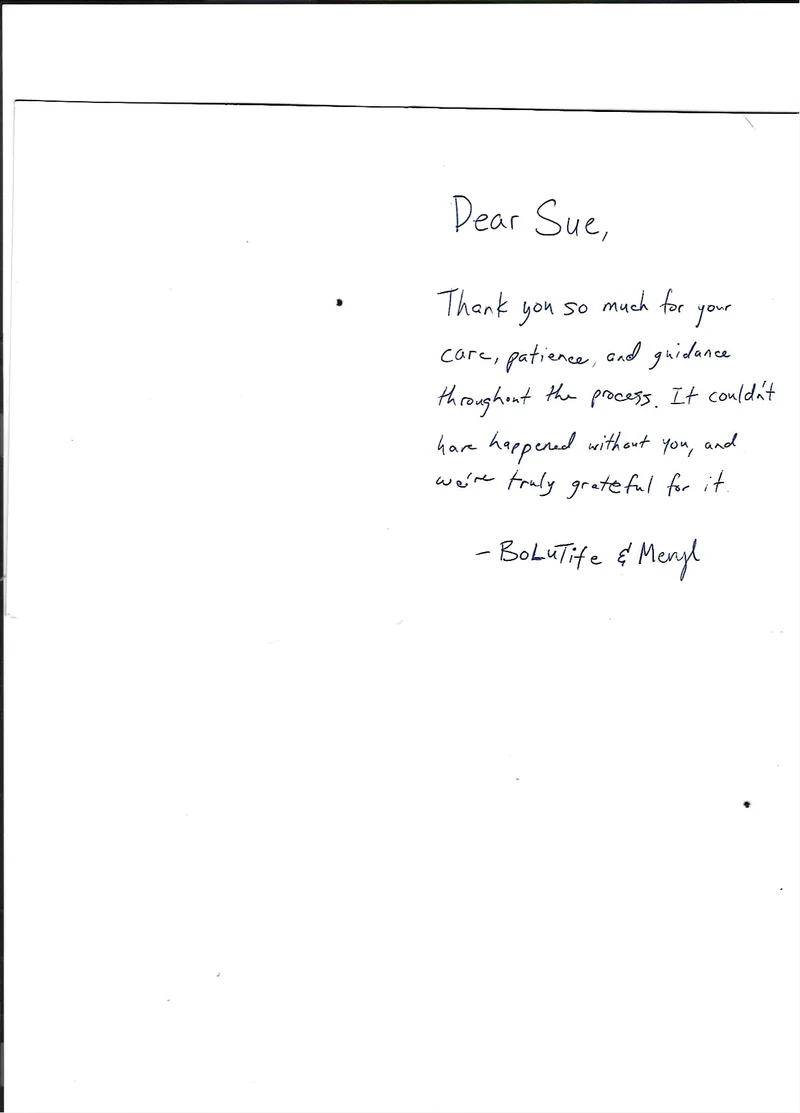 Dear Sue,
Thank you so much for your
care, patience, and guidance
throughout the process. It couldn't
have happened without you, and
we're truly grateful for it.
- BoLuTife & Meryl